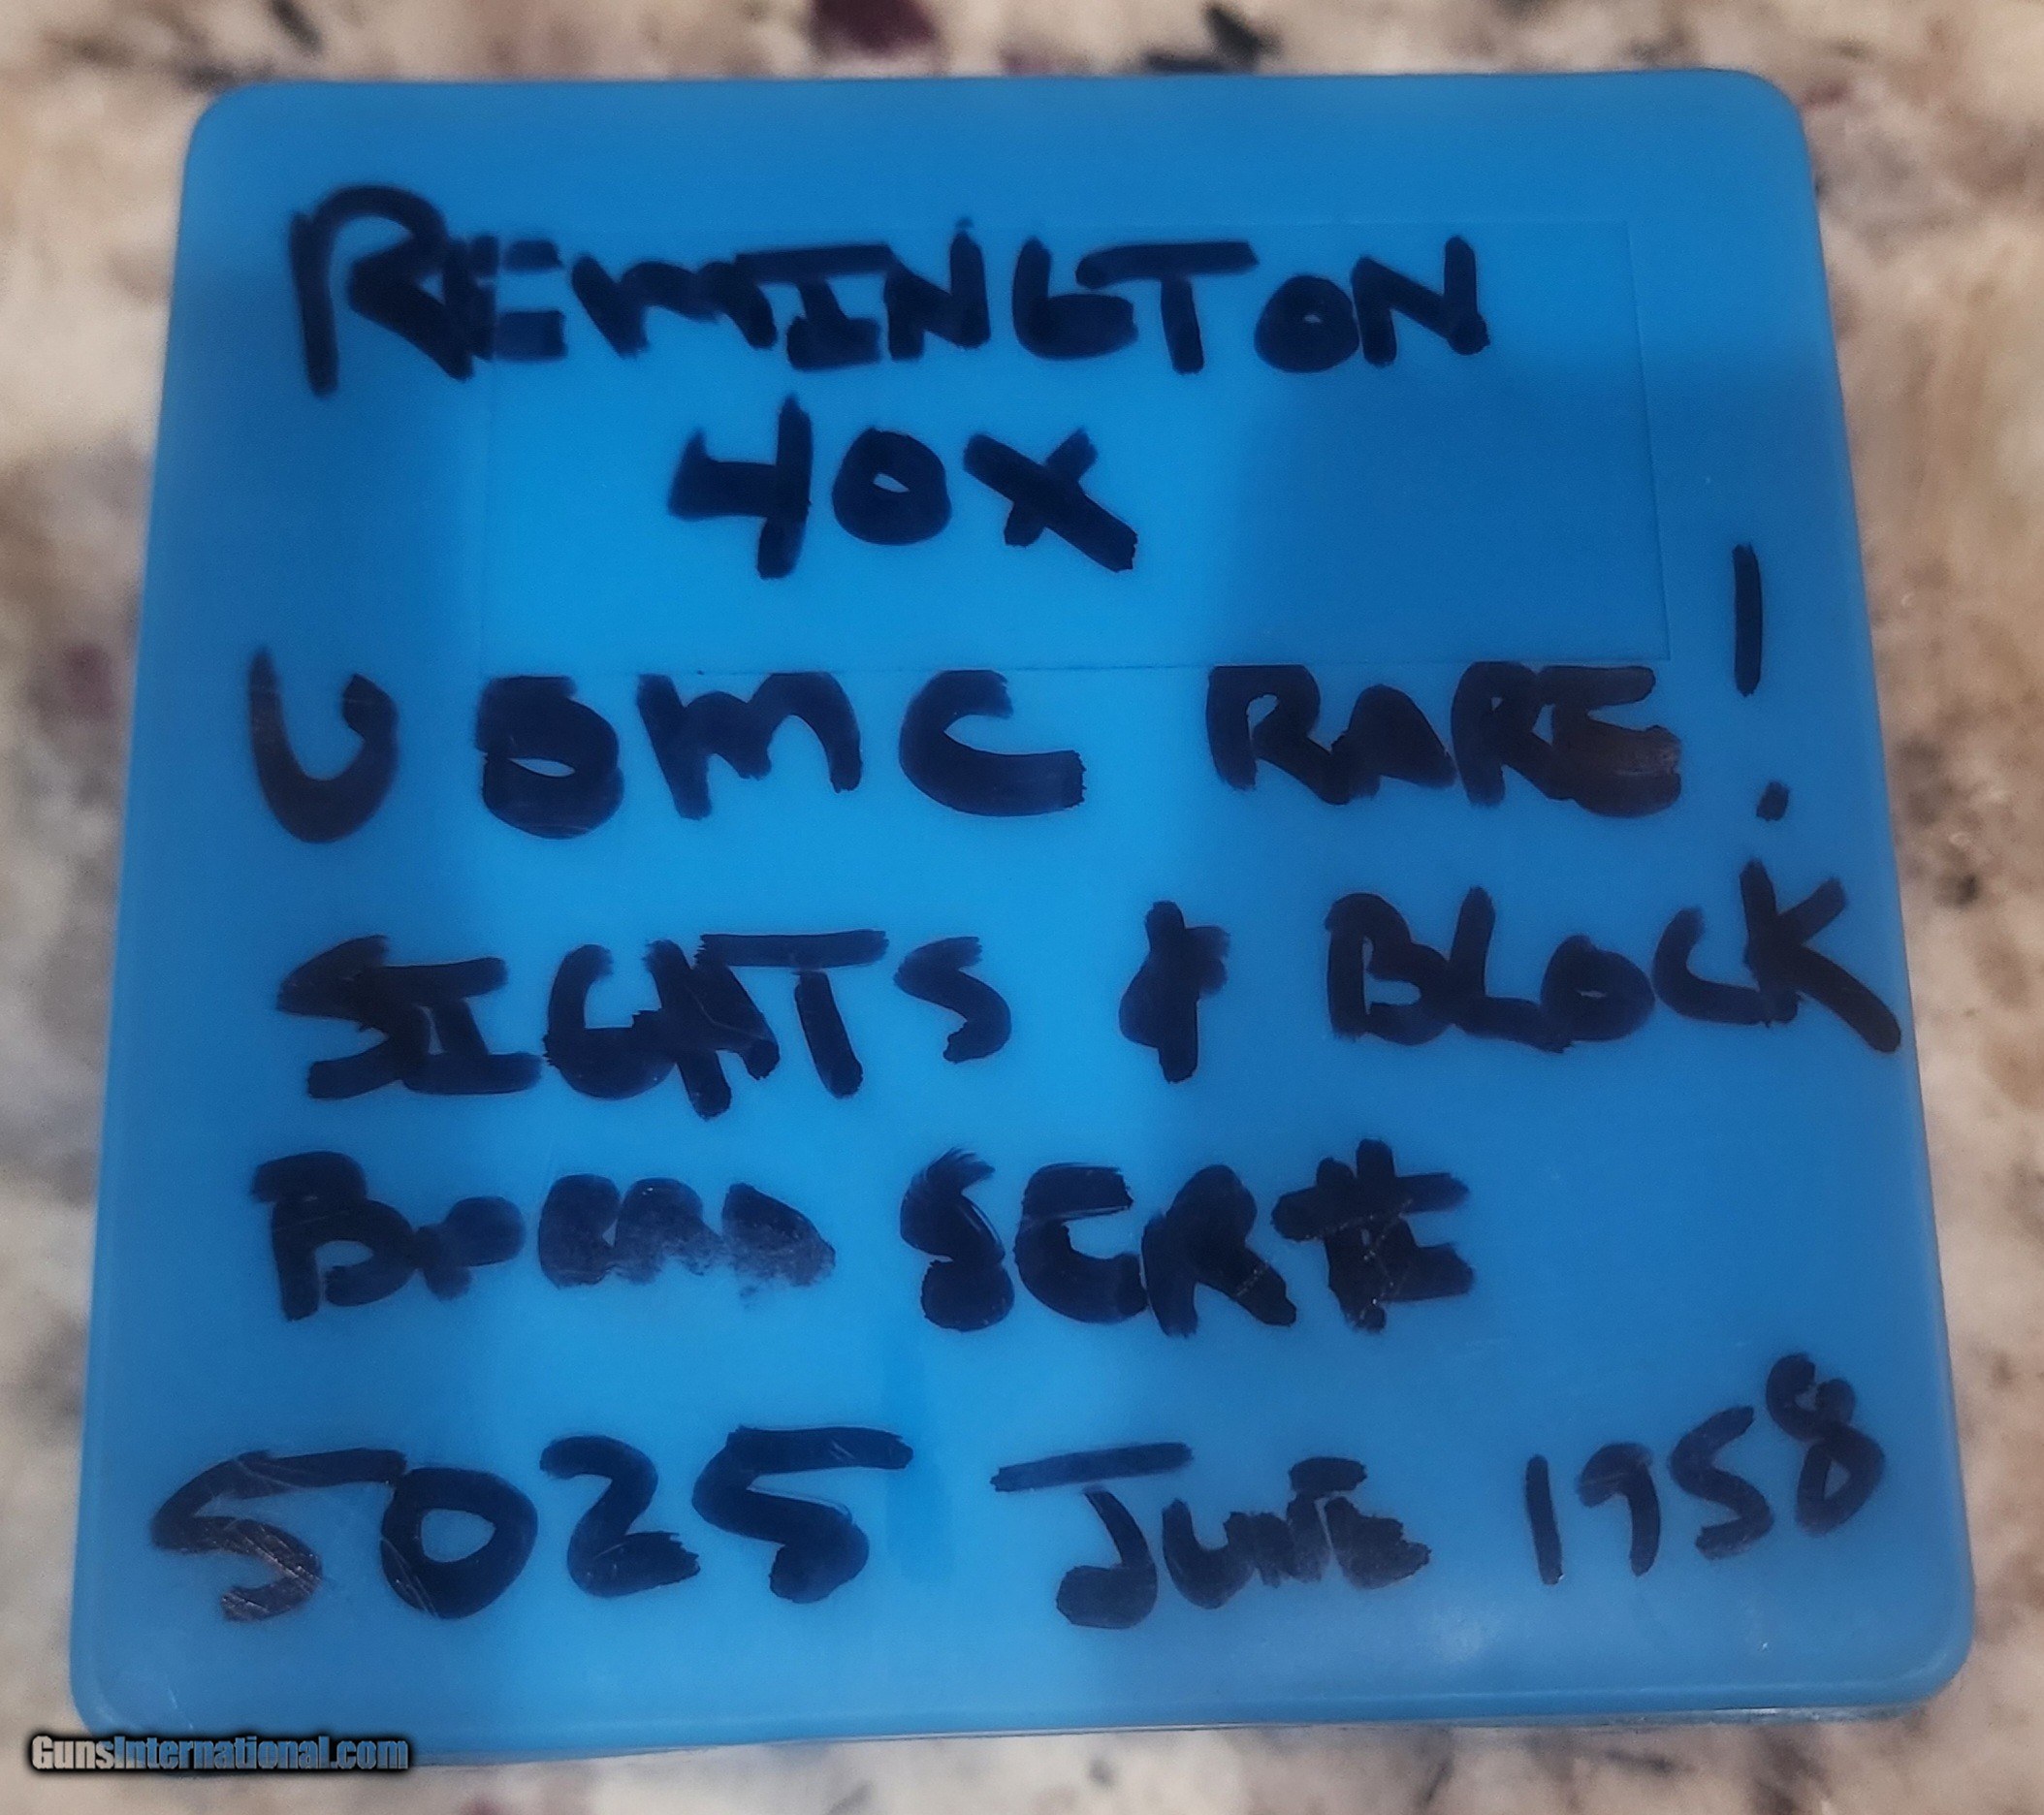 REMINGTON
40X
UOMC RARE!
SIGHTS & BLOCK
SER#
5025 JUNE 1958
GunsInternational.com